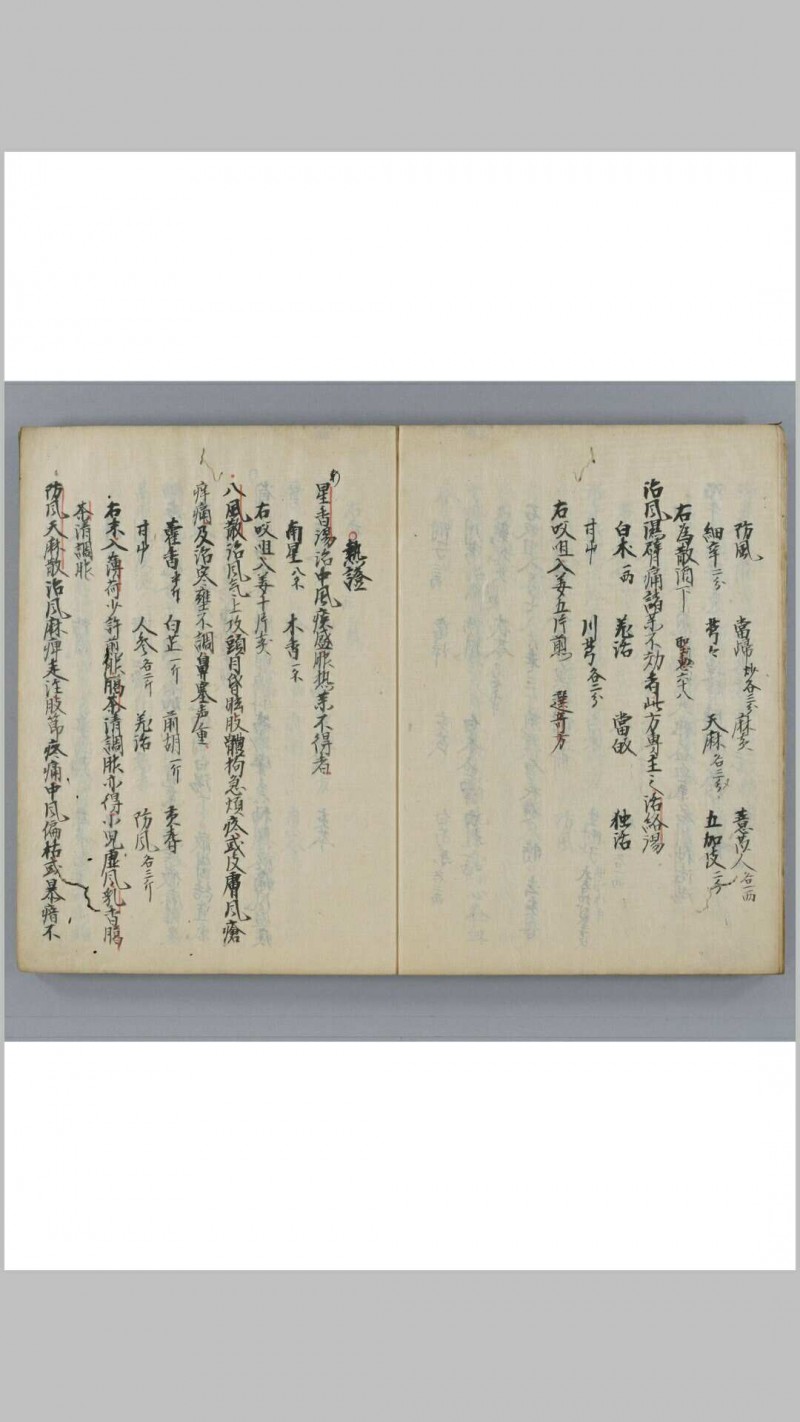 防風 當帰炒各三分 麻黄 薏苡人各一両
細辛二分 芎々 天麻各三分 五加皮二分
右為散酒下 聖惠六十八
治風濕臂痛諸薬不効者此方專主之活絡湯
白朮一両 羗活 當歸 独活
甘艸 川芎各二分
右㕮咀入姜五片煎 選奇方
熱證
星香湯治中風痰盛服熱薬不得者
南星八木香一
右㕮咀入姜十片煎
八風散治風気上攻頭目昏眩肢體拘急煩疼或皮膚風瘡
痒痛及治寒壅不調鼻塞声重
藿香半斤 白芷一斤 前胡一斤 黄芪
甘艸 人参各二斤 羗活 防風各三斤
右末入薄荷少許煎服臈茶清調服亦得小児虚風乳香臈
茶清調服
防風天麻散治風麻痺走注肢節疼痛中風偏枯或暴瘖不